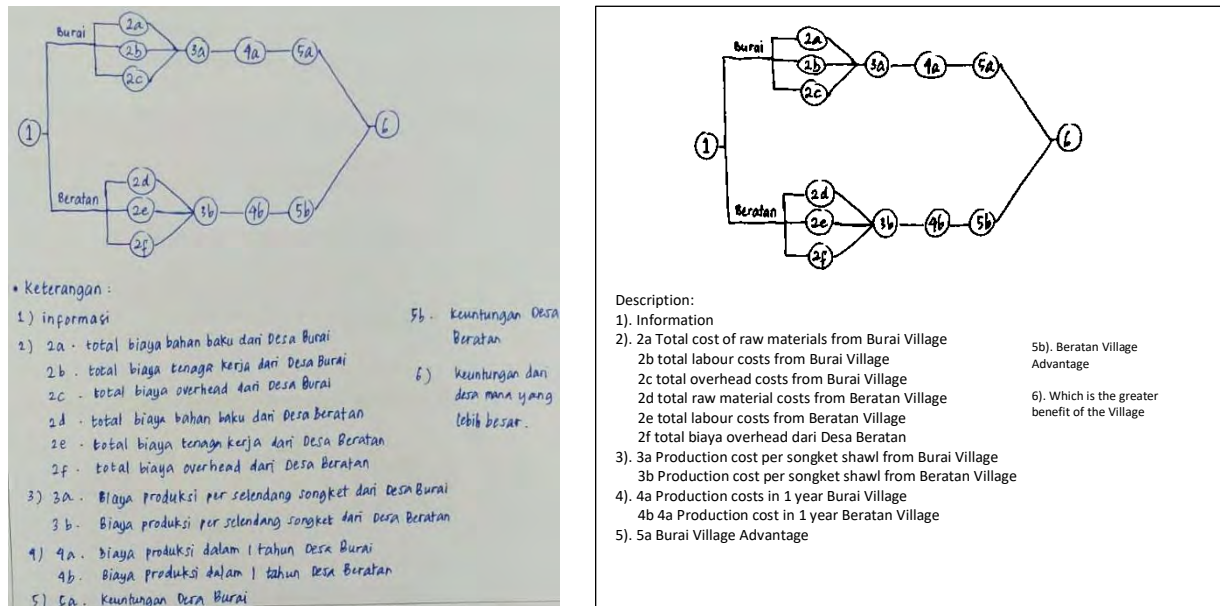 Burai
2a
2b
2c
3a
4a
5a
1
6
Beratan
2d
2e
2f
3b
4b
5b
• Keterangan :
1) informasi
2) 2a . total biaya bahan baku dari Desa Burai
2b . total biaya tenaga kerja dari Desa Burai
2c . total biaya overhead dari Desa Burai
2d . total biaya bahan baku dari Desa Beratan
2e . total biaya tenaga kerja dari Desa Beratan
2f . total biaya overhead dari Desa Beratan
3) 3a. Biaya produksi per selendang songket dari Desa Burai
3b. Biaya produksi per selendang songket dari Desa Beratan
4) 4a. Biaya produksi dalam 1 tahun Desa Burai
4b. Biaya produksi dalam 1 tahun Desa Beratan
5) 5a. Keuntungan Desa Burai
5b. Keuntungan Desa
Beratan
6) Keuntungan dari
desa mana yang
lebih besar.
Burai
2a
2b
2c
3a
4a
5a
1
6
Beratan
2d
2e
2f
3b
4b
5b
Description:
1). Information
2). 2a Total cost of raw materials from Burai Village
2b total labour costs from Burai Village
2c total overhead costs from Burai Village
2d total raw material costs from Beratan Village
2e total labour costs from Beratan Village
2f total biaya overhead dari Desa Beratan
3). 3a Production cost per songket shawl from Burai Village
3b Production cost per songket shawl from Beratan Village
4). 4a Production costs in 1 year Burai Village
4b 4a Production cost in 1 year Beratan Village
5). 5a Burai Village Advantage
5b). Beratan Village
Advantage
6). Which is the greater
benefit of the Village